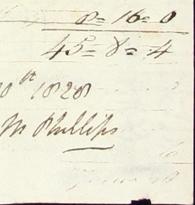 8=16=0
45=8=4
0th 1828
M Phillips